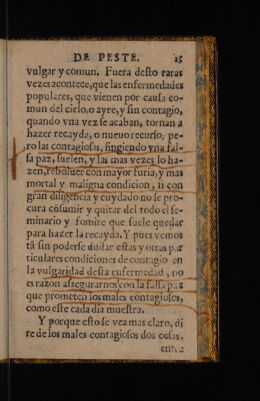 DE PESTE. 25
vulgar y comun. Fuera desto raras
vezes acontece, que las enfermedades
populares, que vienen por causa co-
mun del cielo, o ayre, y sin contagio,
quando vna vez se acaban, tornan a
hazer recayda, o nueuo recurso, pe-
ro las contagiosas, fingiendo vna fal-
sa paz, suelen, y las mas vezes lo ha-
zen, reboluer con mayor furia, y mas
mortal y maligna condicion, si con
gran diligencia y cuydado no se pro-
cura cõsumir y quitar del todo el se-
minario y fomite que suele quedar
para hazer la recayda. Y pues vemos
tã sin poderse dudar estas y otras par
ticulares condiciones de contagio en
la vulgaridad desta enfermedad, no
es razon assegurarnos con la falsa paz
que prometen los males contagiosos,
como este cada dia muestra.
Y porque esto se vea mas claro, di
re de los males contagiosos dos cosas,
entre